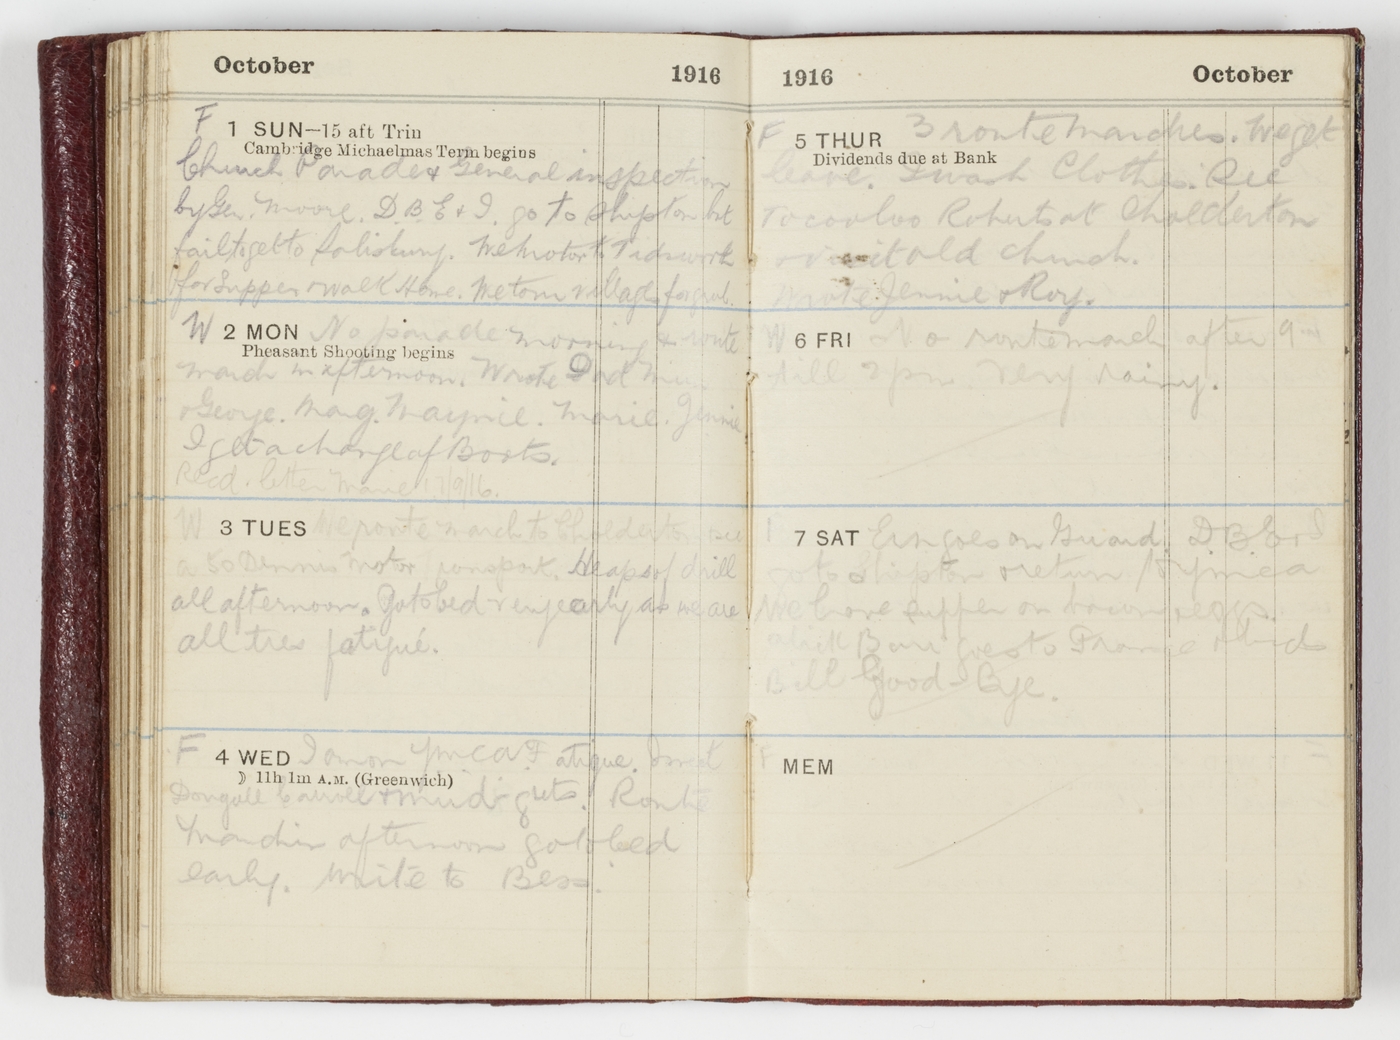 October 1916
F 1 SUN—15 aft Trin
Cambridge Michaelmas Term begins
Church Parade & General inspection
by Gen. Moore. D B E & I. go to Shipton but
fail to get to Salisbury. We motor to Tidsworth
for Supper & walk Home. We tour village for grub.
W 2 MON No parade morning & route
Pheasant Shooting begins
march in afternoon. Wrote Dad Mum
& George. Marg. Maynie. Marie. Jennie
I get a change of Boots.
Recd. letter Marie 17/9/16.
W 3 TUES We route march to Cholderton see
a 50 Dennis Motor Transport. Heaps of drill
all afternoon. Go to bed very early as we are
all tres fatigué.
F 4 WED I am on YMCA Fatigue. I meet
☽ 11h 1m A.M. (Greenwich)
Dougall Carroll & mud guts. Route
March in afternoon go to bed
early. Write to Bess.
1916 October
F 5 THUR 3 route marches. We get
Dividends due at Bank
leave. I wash Clothes. See
Toowoloo Roberts at Cholderton
& visit old church.
Wrote Jennie & Roy.
W 6 FRI No route march after 9
till 2 pm. Very rainy.
7 SAT Ern goes on Guard. D. B. E & I
go to Shipton & return to Ymca
We have supper on bacon & eggs.
Barr goes to France & bids
Bill Good-Bye.
F MEM